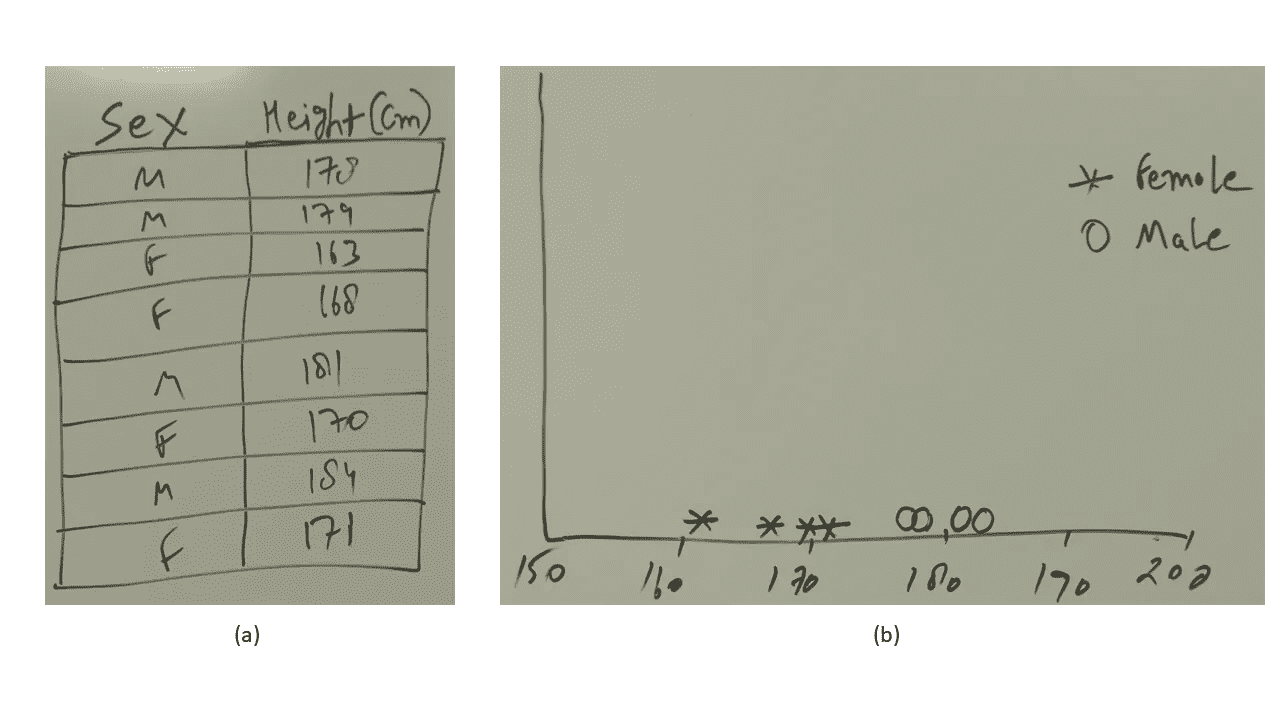 Sex Height(Cm)
M 178
M 179
F 163
F 168
M 181
F 170
M 184
F 171
(a)
Female
Male
150 160 170 180 190 200
(b)